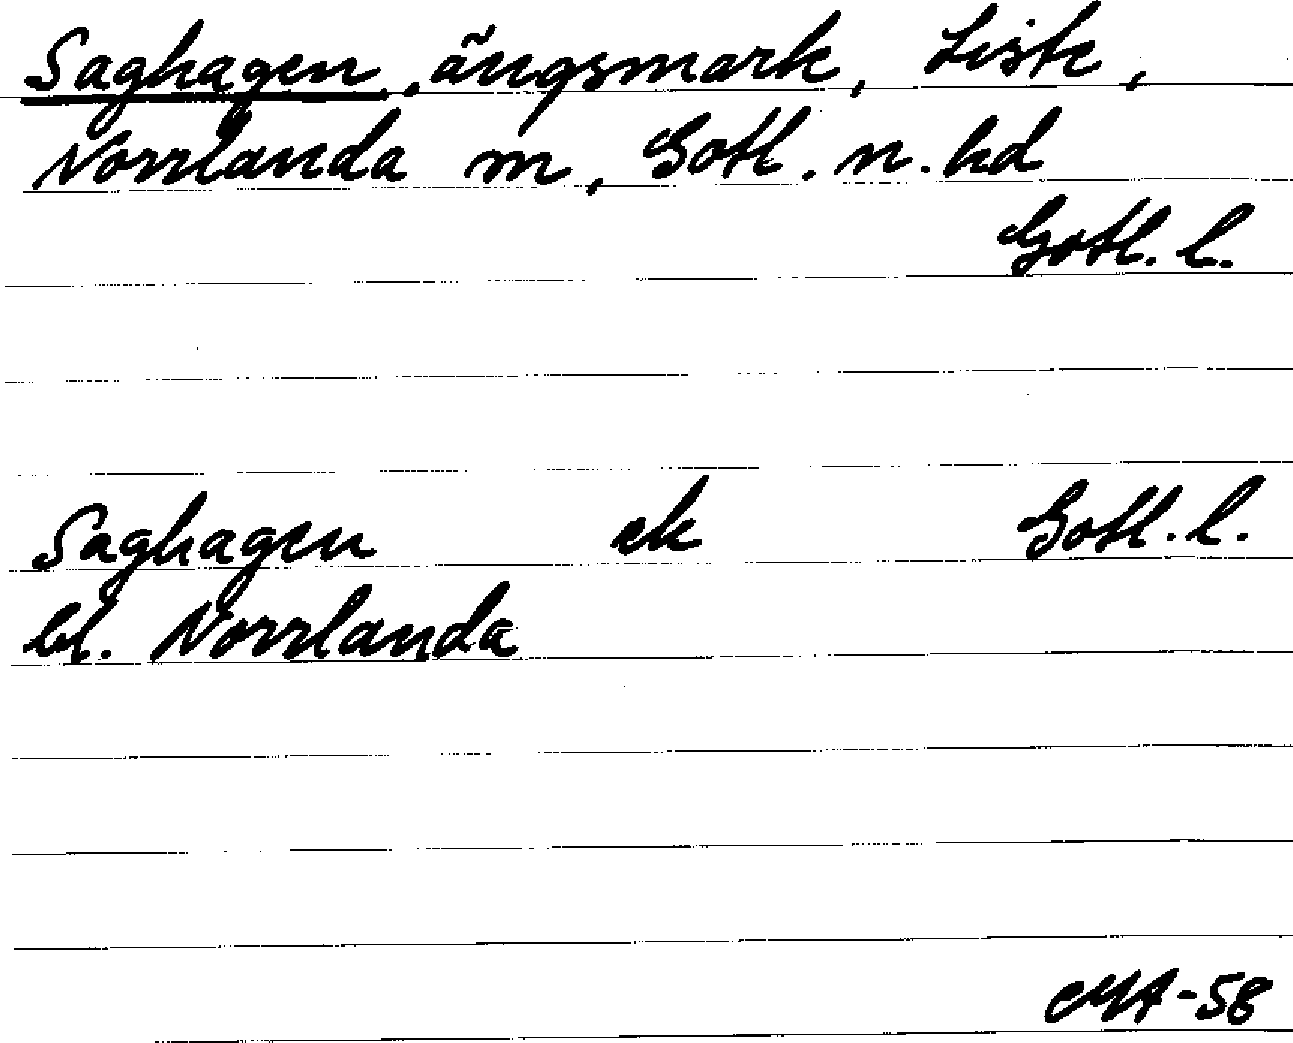 Saghagen, ängsmark, Liste,
Norrlanda sn, Gotl. n. hd
Gotl. l.
Saghagen ek Gotl. l.
bl. Norrlanda
MA-58